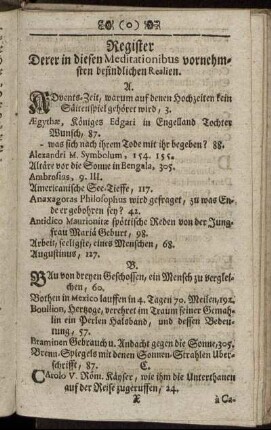 (o)
Register
Derer in diesen Meditationibus vornehm-
sten befindlichen Realien.
A.
ADvents-Zeit, warum auf denen Hochzeiten kein
Säitenspiel gehöret wird, 3.
Ægythæ, Königes Edgari in Engelland Tochter
Wunsch, 87.
- was sich nach ihrem Tode mit ihr begeben? 88.
Alexandri M. Symbolum, 154. 155.
Altäre vor die Sonne in Bengala, 305.
Ambrosius, 9. 111.
Americanische See-Tieffe, 117.
Anaxagoras Philosophus wird gefraget, zu was En-
de er gebohren sey? 42.
Antidico Maurionitæ spöttische Reden von der Jung-
frau Mariä Geburt, 98.
Arbeit, seeligste, eines Menschen, 68.
Augustinus, 127.
B.
BAu von dreyen Geschossen, ein Mensch zu verglei-
chen, 60.
Bothen in Mexico lauffen in 4. Tagen 70. Meilen, 192.
Bouillon, Hertzoge, verehret im Traum seiner Gemah-
lin ein Perlen Halsband, und dessen Bedeu-
tung, 57.
Braminen Gebrauch u. Andacht gegen die Sonne, 305.
Brenn-Spiegels mit denen Sonnen-Strahlen Uber-
schrifft, 87.
C.
CArolo V. Röm. Käyser, wie ihm die Unterthanen
auf der Reise zugeruffen, 24.
à Ca-